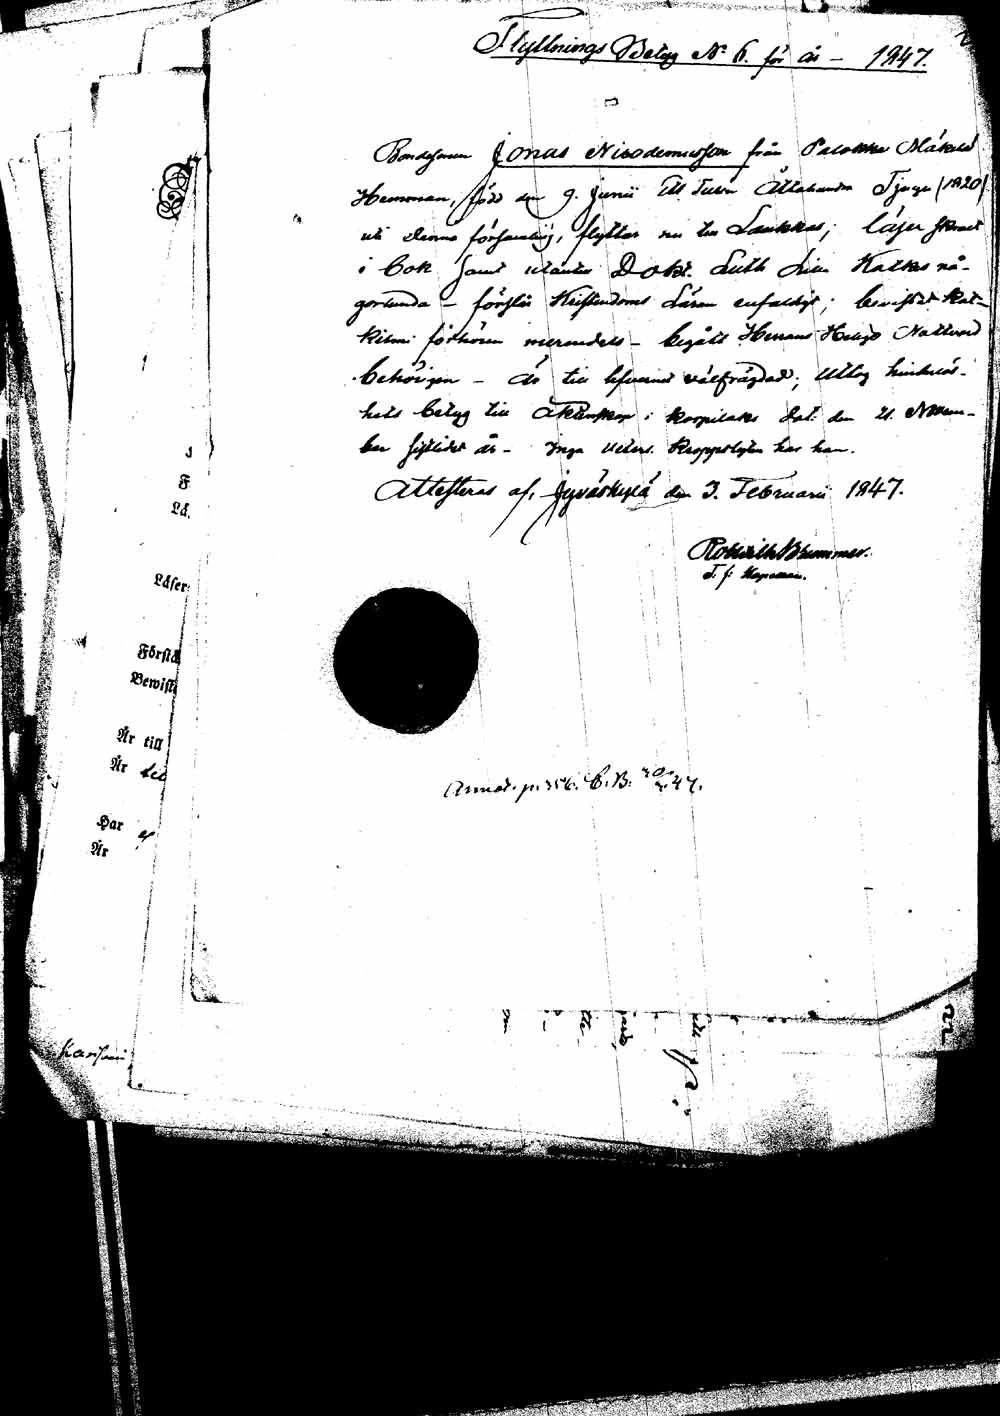 Flyttnings Betyg No 6. för år – 1847.
Bondesonen Jonas Nicodemusson från Palokka Mäkelä
Hemman, född den 9. Junii Ett Tusen Åttahundra Tjugu (1820)
uti denna församling, flyttar nu till Laukkas; läser svart
i bok samt utantill Dokt. Luth. Lilla Katkes nå-
gorlunda – förstår Kristendoms Läran enfaldigt; bevistat Kat-
kismi förhören merendels – begått Herrans Heliga Nattvard
behörigen – är till lefvernet välfrägdad; Uttog hinderlös-
hets betyg till Äktenskap i Korpilaks dat. den 21. Novem-
ber sistlidet år – Inga Kroppslyten har han.
Attesteras af, Jyväskylä den 3. Februarii 1847.
Brummer.
T. f. Kapellan.
Annot. p. 356. C. B. 47.
F
Lä.
Läser
Förstå
Bewist
Är till
Är
Har
Är